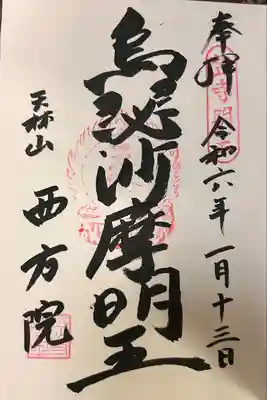 奉拝
令和六年一月十三日
烏瑟沙摩明王
天林山
西方院